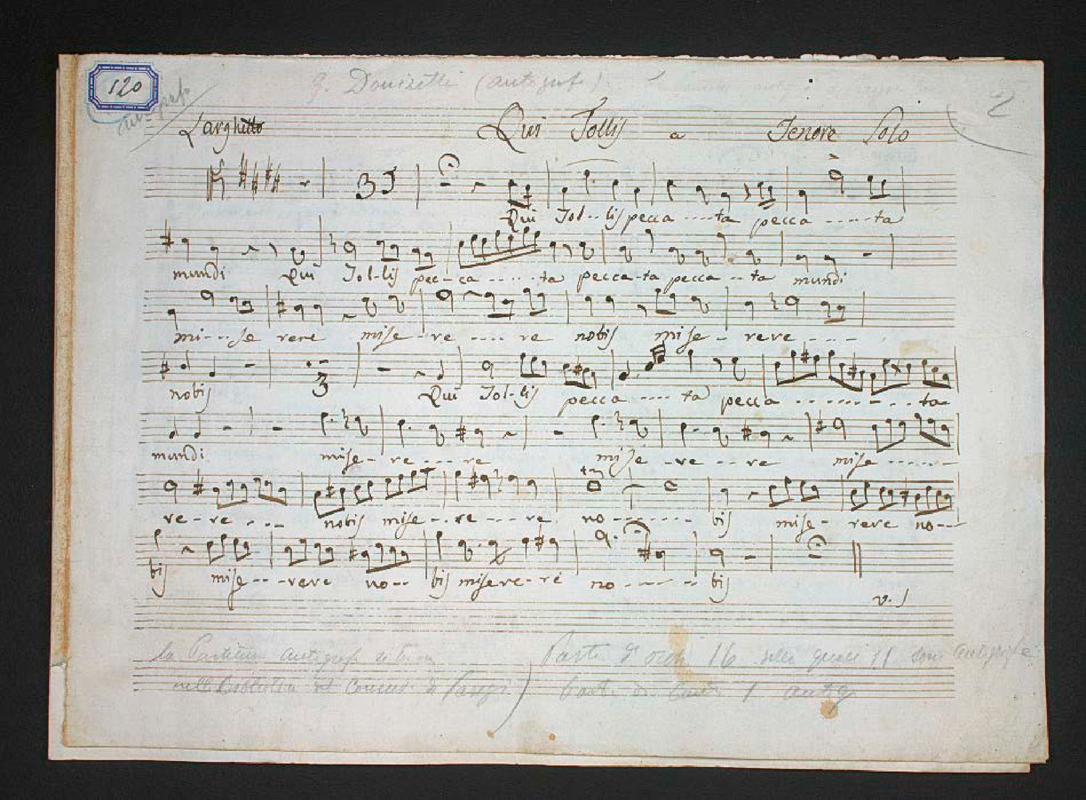 120
G. Donizetti (autografo)
autografo
2
Larghetto
Qui Tollis a Tenore Solo
33
Qui Tol--lis pecca ----ta pecca -----ta
mundi Qui Tol-lis pec-ca ----- ta pecca-ta pecca --ta mundi
mi---se rere mise--re ---- re nobis mise-- rere ----
nobis 3 Qui Tol-lis pecca ---- ta pecca --------- ta
mundi mise-re --- re mise -re --- re mise ------
re-re ---- nobis mise --re --- re no -------- bis mise- rere no---
bis mise ---rere no-- bis misere-re no ------- bis
v. s
la Partitura autografa si trova
Parti d'orch 16 delle quali 11 sono autografe
nella Biblioteca del Conserv. di Parigi)
Parte di 1 autog